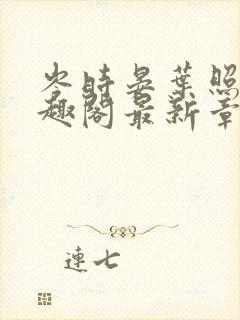 岑時晏葉照
趣閣最新章
連七